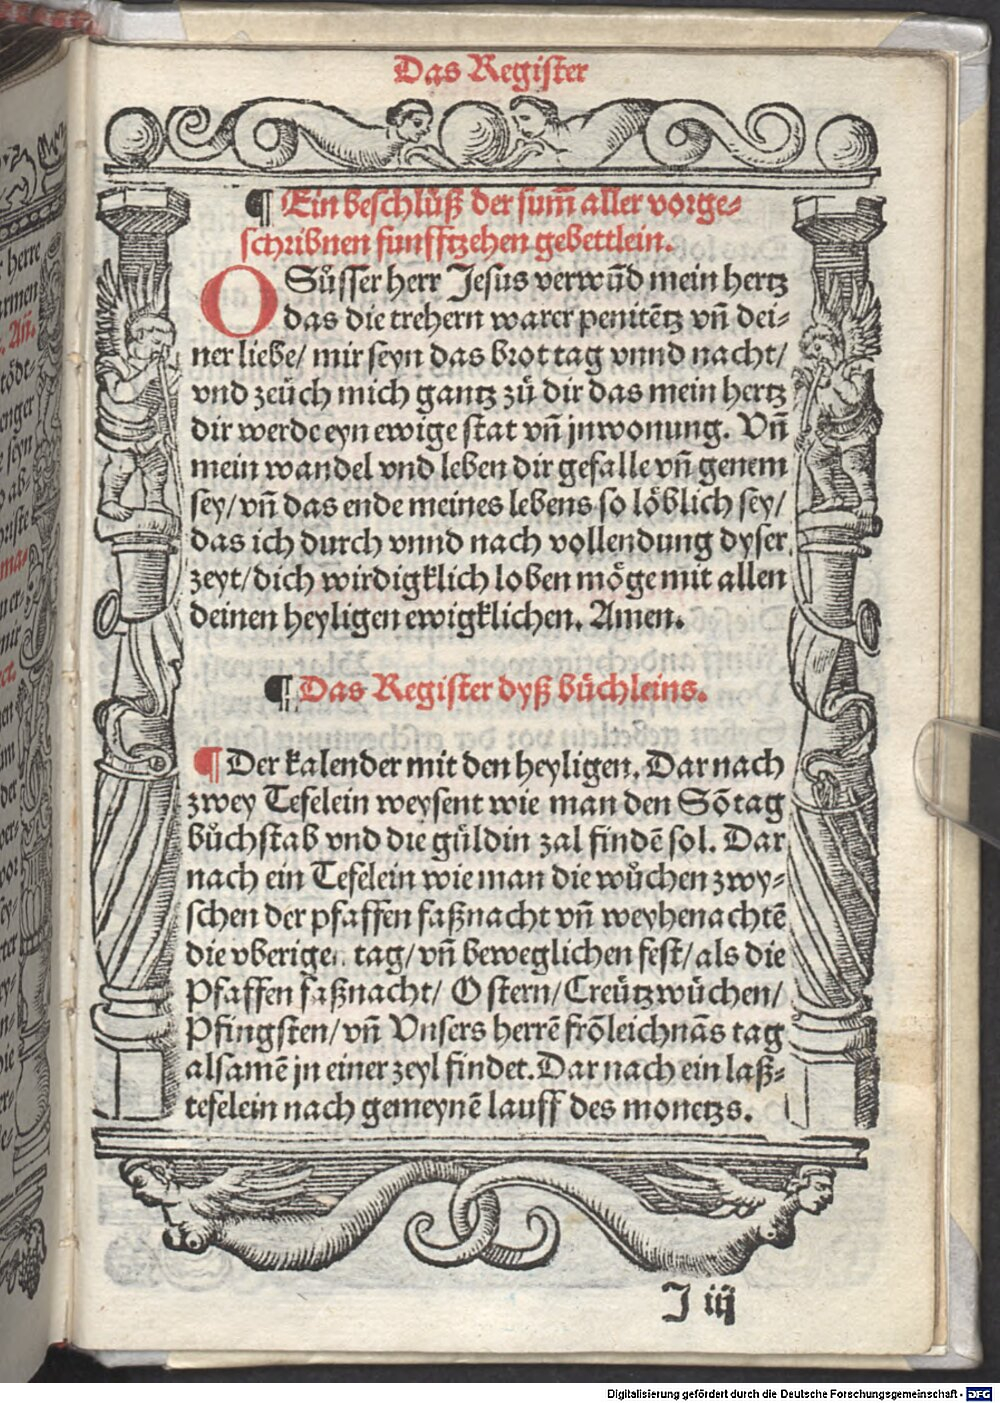 Das Register
¶ Ein beschlůß der sum̃ aller vorge⸗
schribnen funfftzehen gebettlein.
O Sůsser herr Jesus verwũd mein hertz
das die trehern warer penitẽtz vñ dei⸗
ner liebe/ mir seyn das brot tag vnnd nacht/
vnd zeůch mich gantz zů dir das mein hertz
dir werde eyn ewige stat vñ jnwonung. Vñ
mein wandel vnd leben dir gefalle vñ genem
sey/ vñ das ende meines lebens so lőblich sey/
das ich durch vnnd nach vollendung dyser
zeyt/ dich wirdigklich loben mőge mit allen
deinen heyligen ewigklichen. Amen.
¶ Das Register dyß bůchleins.
¶ Der kalender mit den heyligen. Dar nach
zwey Tefelein weysent wie man den Sõtag
bůchstab vnd die gůldin zal findẽ sol. Dar
nach ein Tefelein wie man die wůchen zwy⸗
schen der pfaffen faßnacht vñ weyhenachtẽ
die vberige tag/ vñ beweglichen fest/ als die
Pfaffen faßnacht/ Ostern/ Creůtzwůchen/
Pfingsten/ vñ Vnsers herrẽ frõleichnãs tag
alsamẽ jn einer zeyl findet. Dar nach ein laß⸗
tefelein nach gemeynẽ lauff des monetzs.
J iij
herre
armen
. Añ.
tődt⸗
enger
seyn
ab/
riste
ma⸗
mit
der
vor
Digitalisierung gefördert durch die Deutsche Forschungsgemeinschaft - DFG